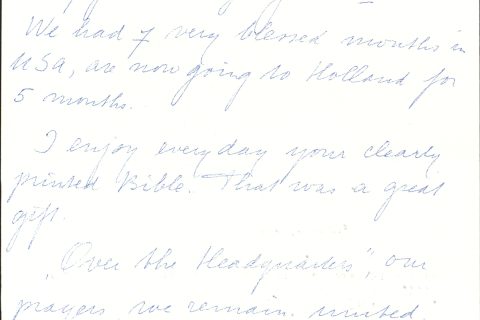 We had 7 very blessed months in
USA, are now going to Holland for
5 months.
I enjoy everyday your clearly
printed Bible. That was a great
gift.
„Over the Headquarters", our
prayers, we remain united.